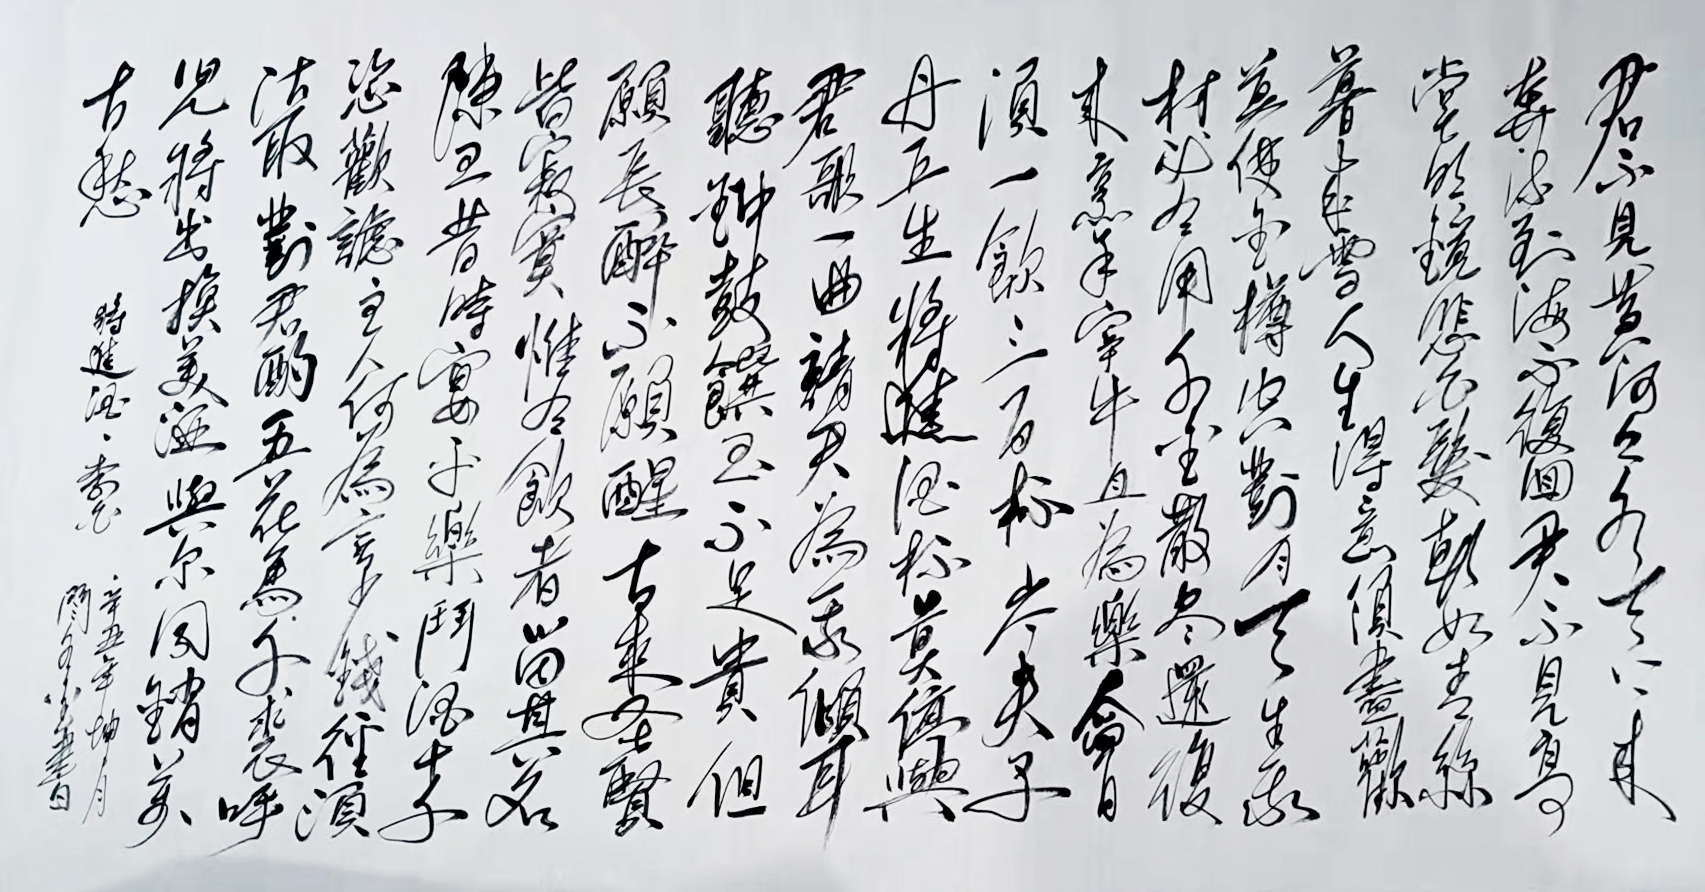 君不見黃河之水天上來
奔流到海不復回君不見高
堂明鏡悲白髮朝如青絲
暮成雪人生得意須盡歡
莫使金樽空對月天生我
材必有用千金散盡還復
來烹羊宰牛且為樂會
須一飲三百杯岑夫子
丹丘生將進酒杯莫停與
君歌一曲請君為我傾耳
聽鐘鼓饌玉不足貴但
願長醉不願醒古來聖賢
皆寂寞惟有飲者留其名
陳王昔時宴平樂斗酒十千
恣歡謔主人何為言少錢徑須
沽取對君酌五花馬千裘呼
兒將出換美酒與尔同銷萬
古愁
將進酒、李白
辛丑年坤月
書